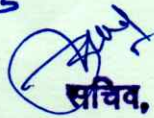 सचिव,